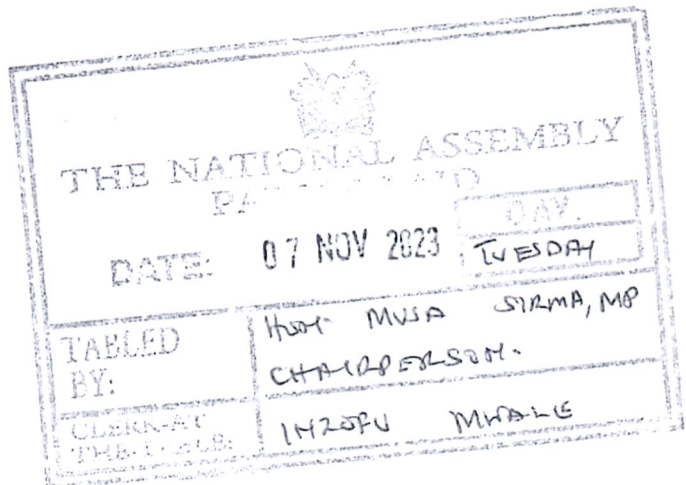 THE NATIONAL ASSEMBLY
DATE: 07 NOV 2023 DAY.
TUESDAY
TABLED BY: HON. MUSA SIRMA, MP
CHAIRPERSON.
CLERK-AT MWALE